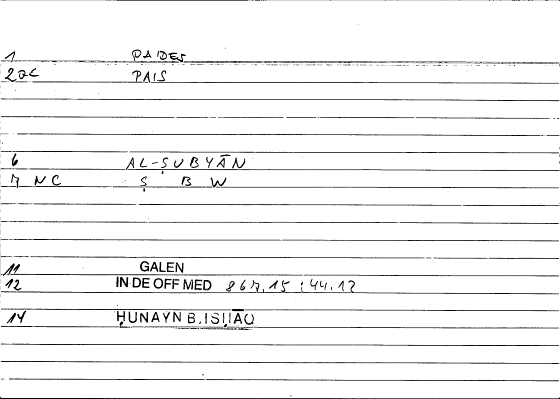 1 PADES
2ac PAIS
6 AL-ṢUBYĀN
7 NC Ṣ B W
11 GALEN
12 IN DE OFF MED 867,15 : 44.12
14 ḤUNAYN B. ISḤĀQ